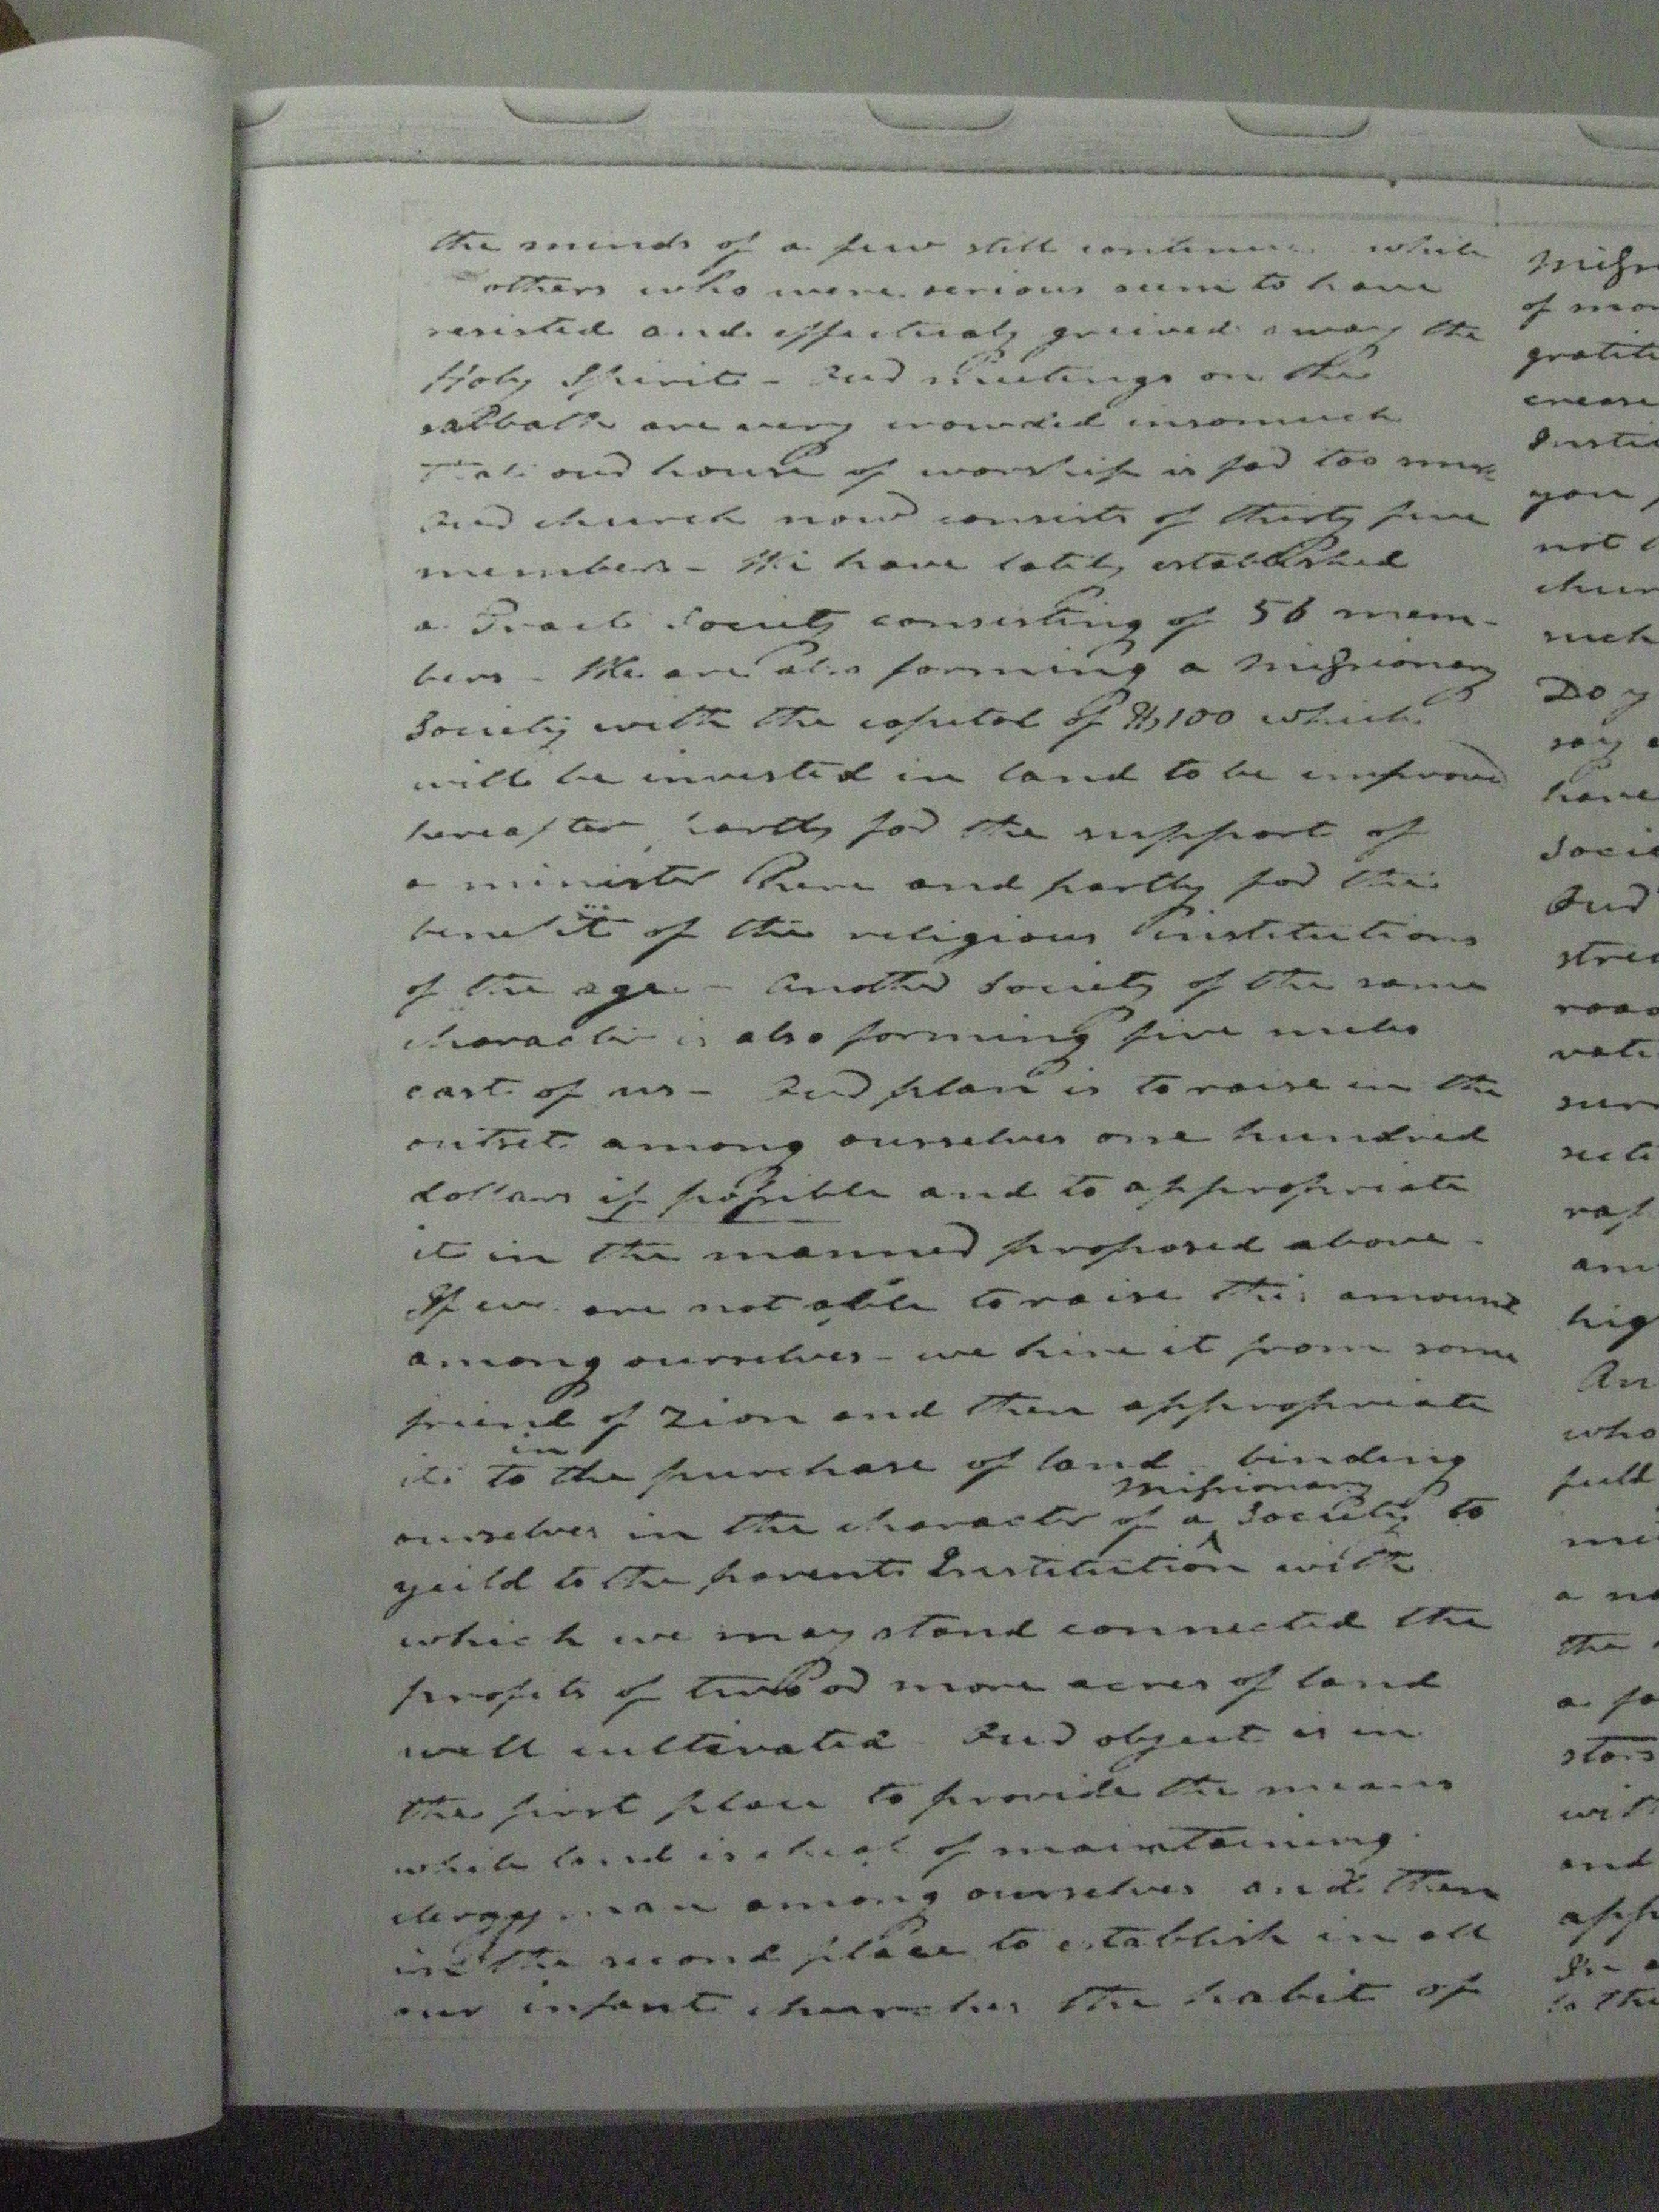 the minds of a few still continue while
others who were serious seem to have
resisted and effectualy greived away the
Holy Spirit - Our meetings on the
sabbath are very crowded insomuch
that our house of worship is far too
Our church now consists of thirty five
members - We have lately established
a Tract Society consisting of 56 mem-
bers - We are also forming a Missionary
Society with the capital of $100 which
will be invested in land to be improved
hereafter partly for the support of
a minister here and partly for the
benefit of the religious institutions
of the age - Another Society of the same
character is also forming five miles
east of us - Our plan is to raise in the
outset among ourselves one hundred
dollars if possible and to appropriate
it in the manner proposed above -
If we are not able to raise this amount
among ourselves - we hire it from some
friend of Zion and then appropriate
in
it to the purchase of land binding
Missionary
ourselves in the character of a Society to
yeild to the parent Institution with
which we may stand connected the
profits of two or more acres of land
well cultivated Our object is in
the first place to provide the means
while land is cheap of maintaining
clergyman among ourselves and then
in the second place to establish in all
our infant churches the habit of
of
you
not
Do y
have
and
who
a
the
a
and
to the